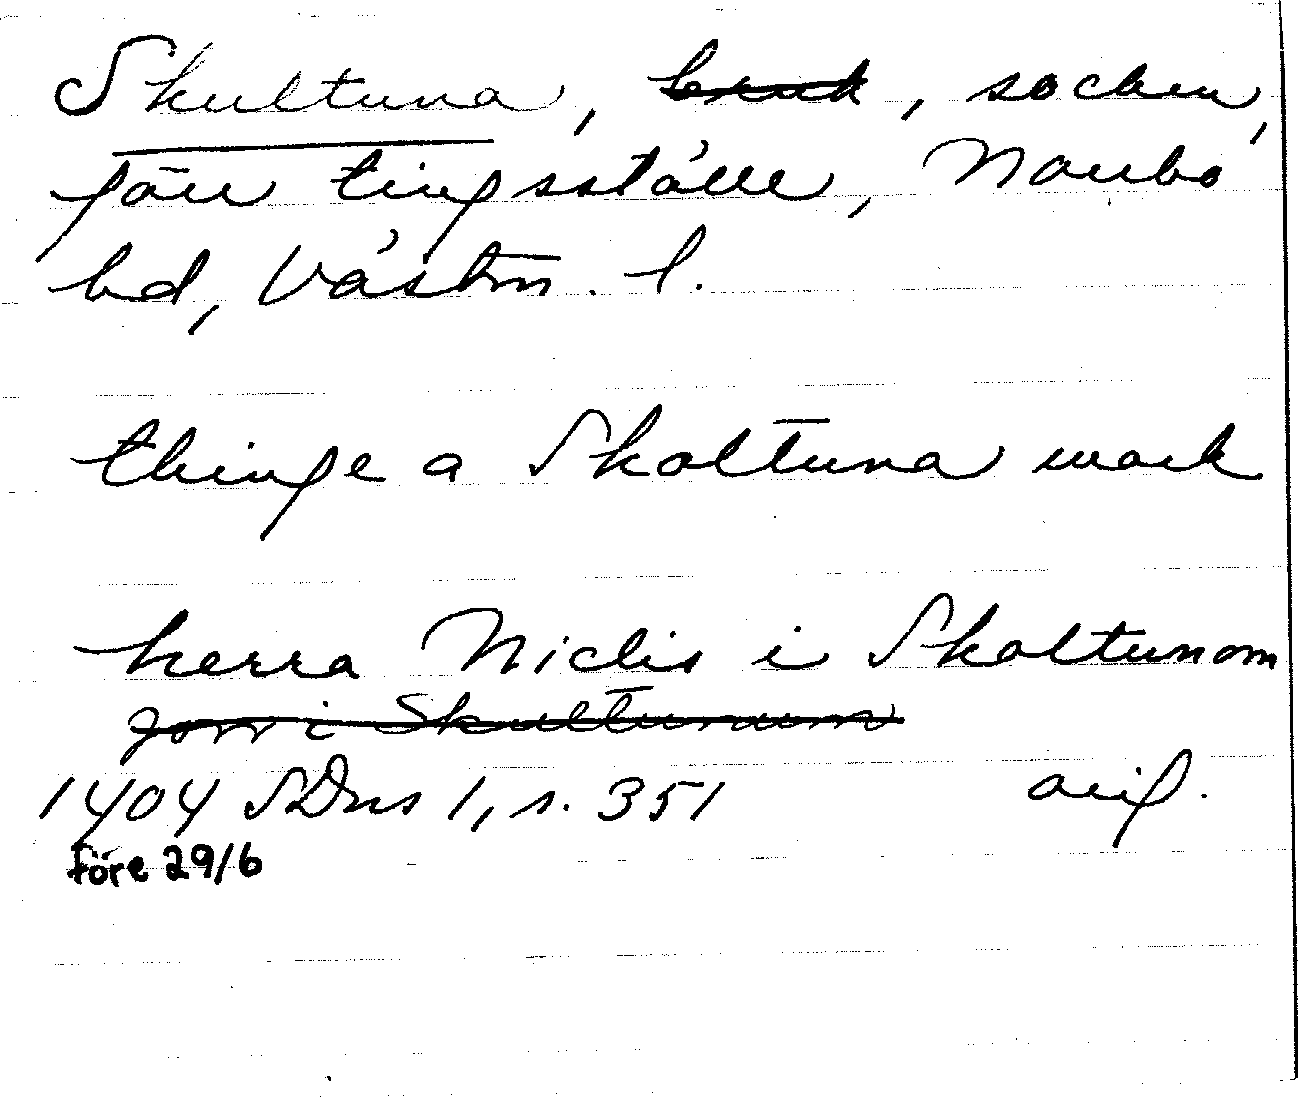 Skultuna, bruk, socken,
förr tingsställe, Norrbo
hd, Västm. l.
thinge a Skoltuna mark
herra Niclis i Skoltunom
i Skultunum
1404 SDns 1, s. 351 orig.
före 29/6